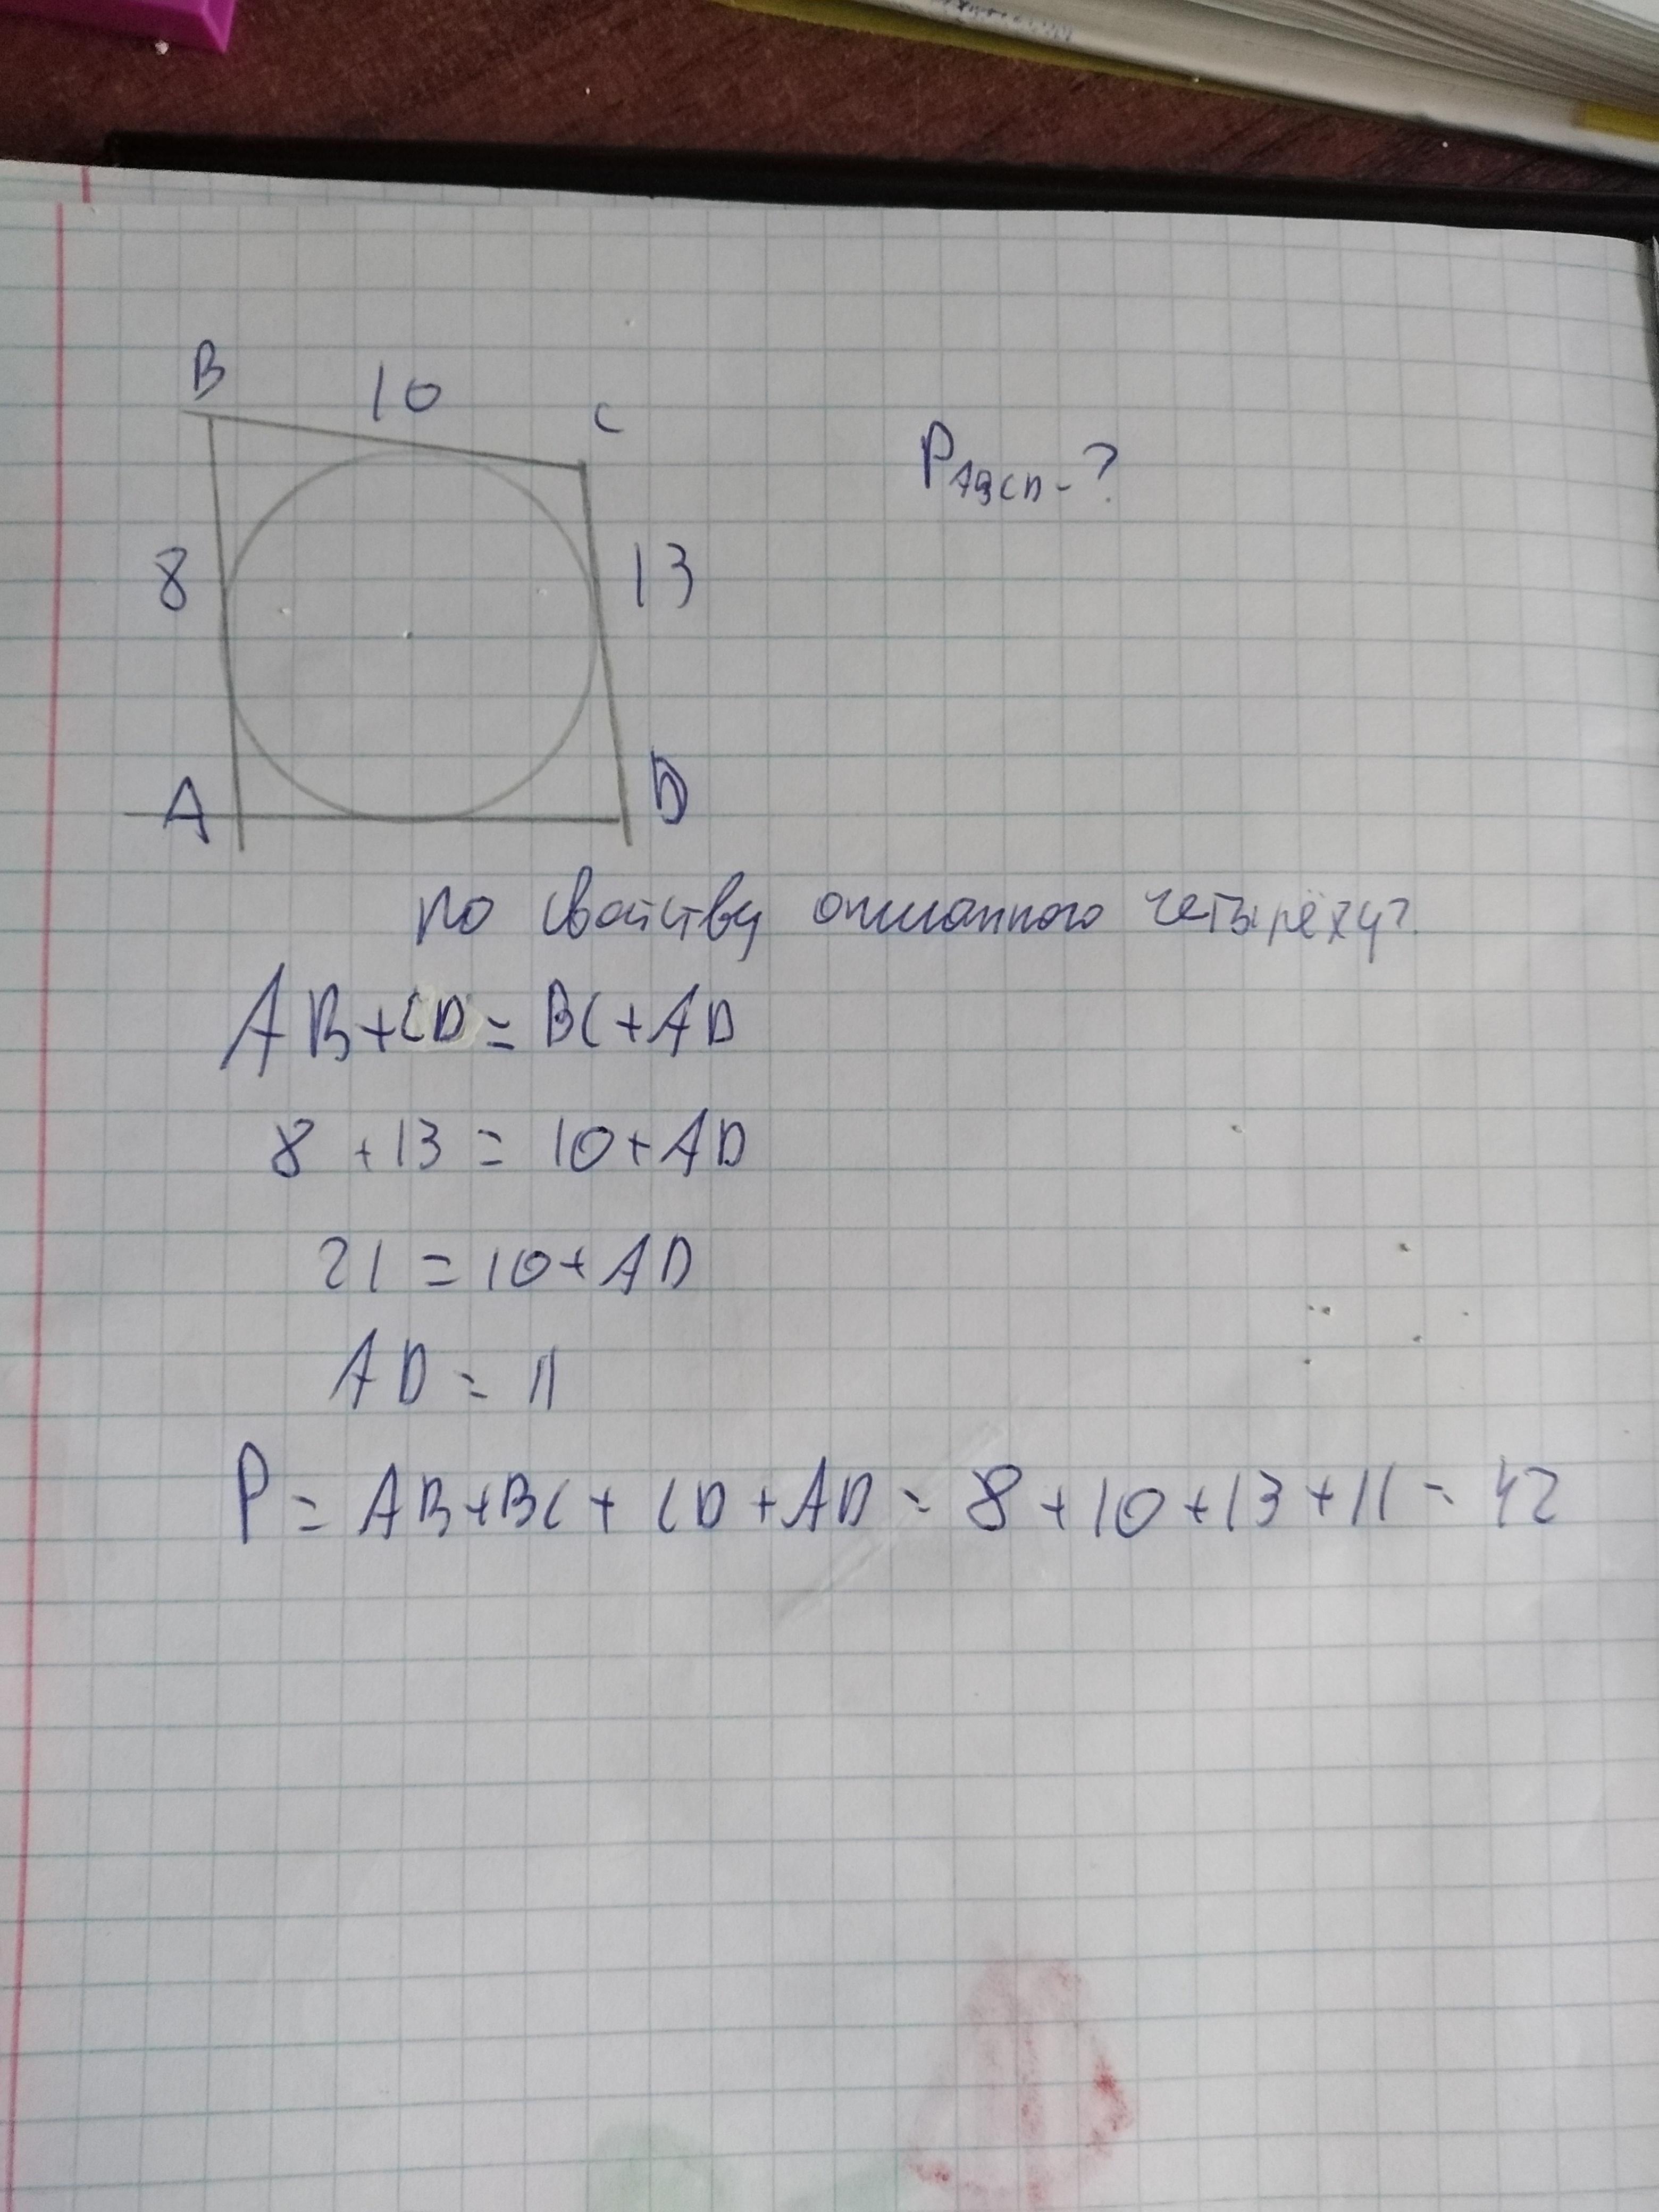 B 10 C
P ABCD - ?
8 13
A D
по свойству описанного четырёхуг.
AB+CD = BC+AD
8 + 13 = 10+AD
21 = 10+AD
AD = 11
P = AB+BC+CD+AD = 8+10+13+11 = 42